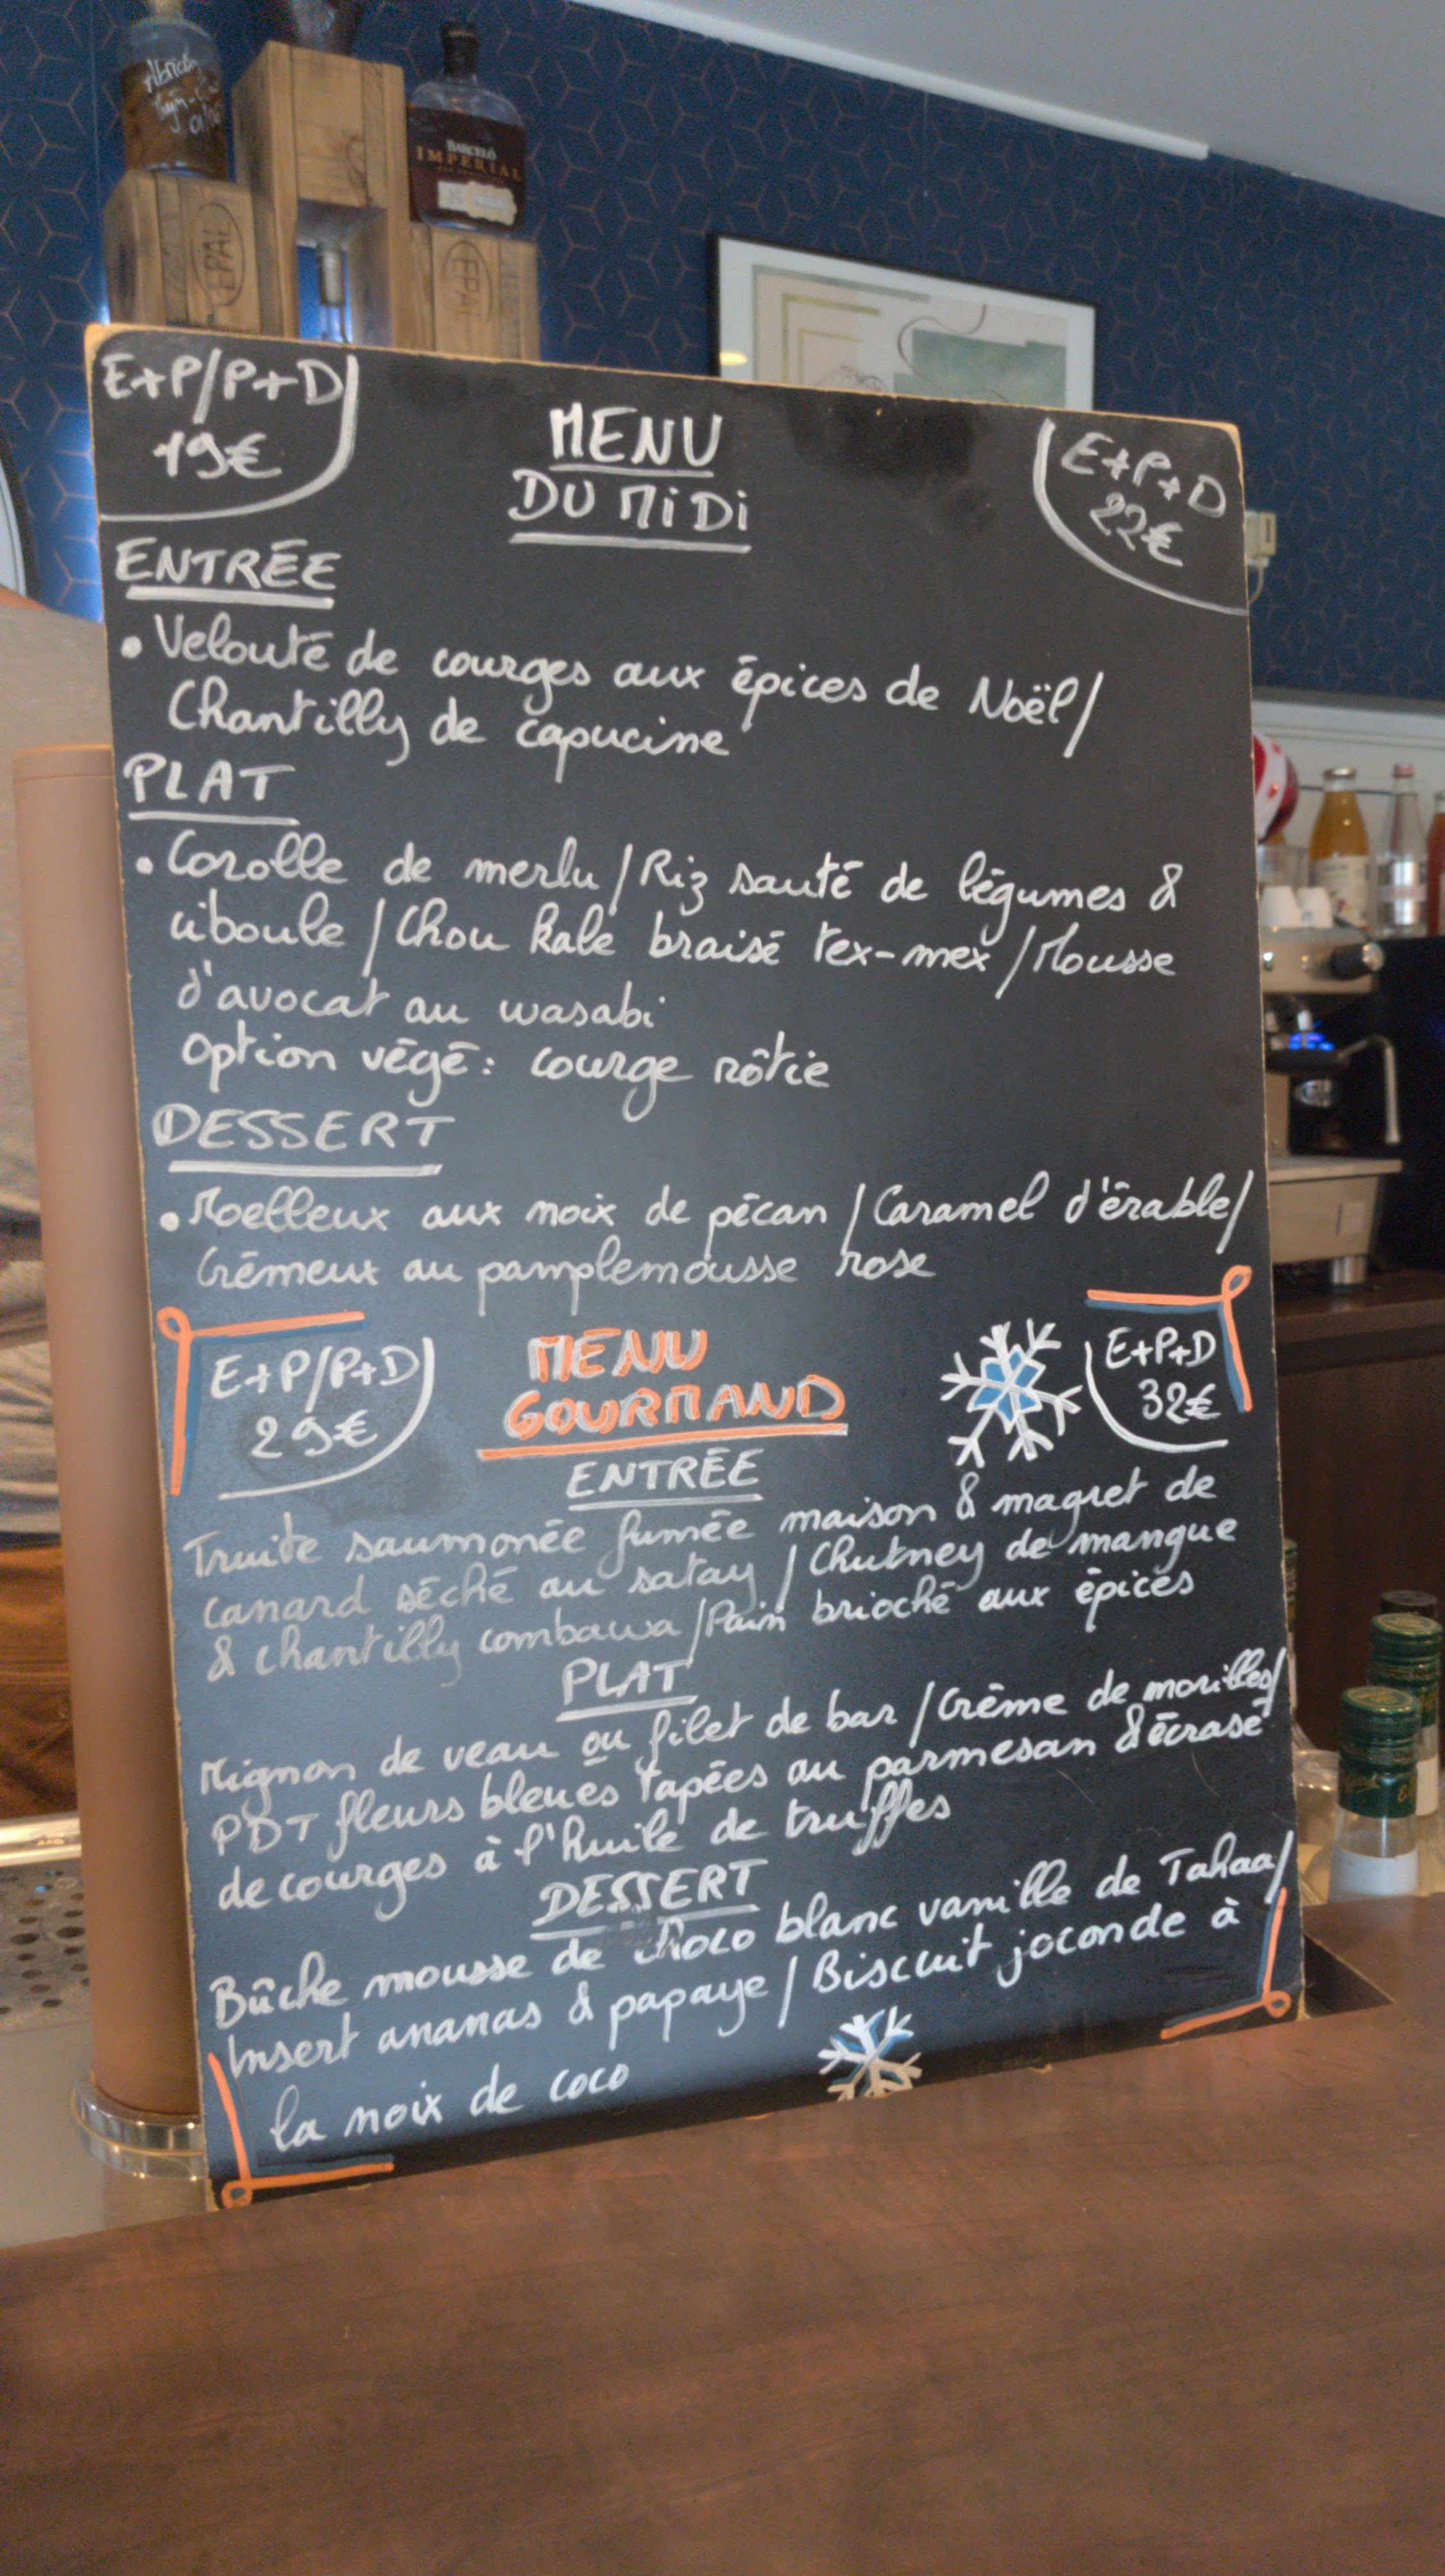 Abricot
BARCELÓ
IMPERIAL
EPAL
EPAL
E+P/P+D
19€
MENU
DU MiDi
E+P+D
22€
ENTRÉE
• Velouté de courges aux épices de Noël/
Chantilly de capucine
PLAT
• Corolle de merlu / Riz sauté de légumes &
ciboule / Chou kale braisé tex-mex / Mousse
d'avocat au wasabi
Option végé: courge rôtie
DESSERT
• Moelleux aux noix de pécan / Caramel d'érable/
Crémeux au pamplemousse rose
E+P/P+D
29€
MENU
GOURMAND
E+P+D
32€
ENTRÉE
Truite saumonée fumée maison & magret de
canard séché au satay / Chutney de mangue
& chantilly combawa / Pain brioché aux épices
PLAT
Mignon de veau ou filet de bar / Crème de morilles/
PDT fleurs bleues tapées au parmesan & écrasé
de courges à l'huile de truffes
DESSERT
Bûche mousse de choco blanc vanille de Tahaa/
Insert ananas & papaye / Biscuit joconde à
la noix de coco